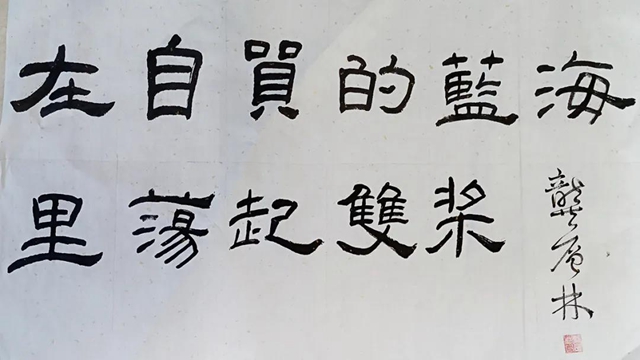 在自貿的藍海
里蕩起雙桨
龔林